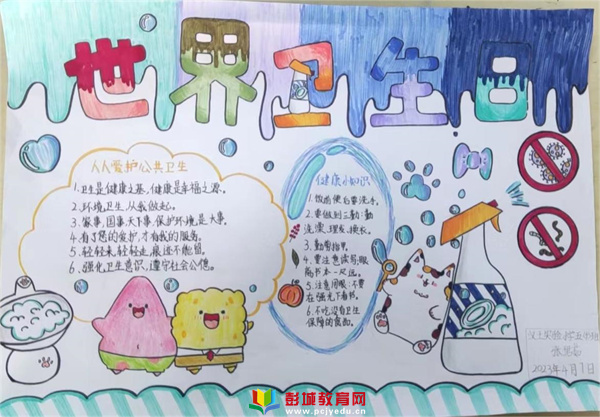 世界卫生日
人人爱护公共卫生
1.卫生是健康之基,健康是幸福之源。
2.环境卫生,从我做起。
3.家事,国事,天下事,保护环境是大事。
4.有了您的爱护,才有我的服务。
5.轻轻来,轻轻走,痕迹不能留。
6.强化卫生意识,遵守社会公德。
健康小知识
1.饭前便后要洗手。
2.要做到三勤:勤
洗澡、理发、换衣。
3.勤剪指甲。
4.要注意读写,眼
离书本一尺远。
5.注意用眼:不要
在强光下看书。
6.不吃没有卫生
保障的食品。
2023年4月1日
彭城教育网
www.pcjyedu.cn